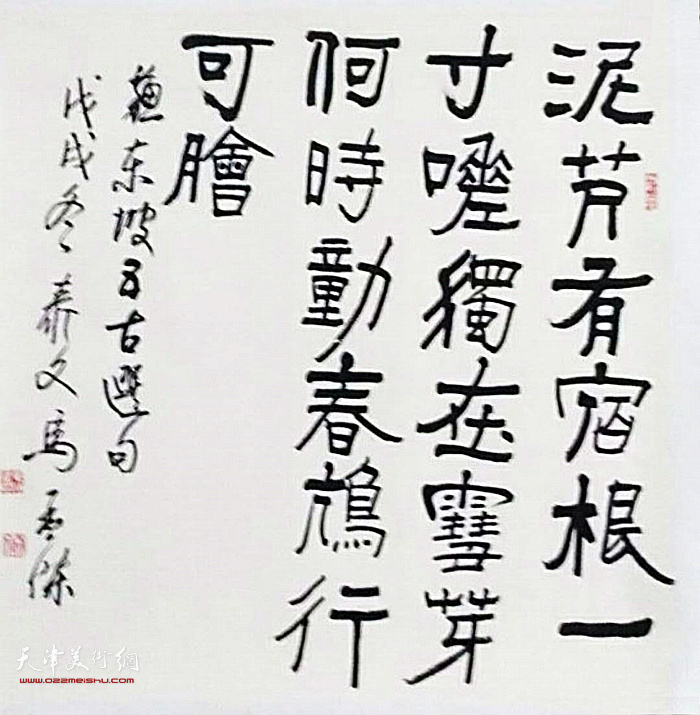 泥芹有宿根一
寸嗟獨在雪芽
何時動春鳩行
可膾
蘇東坡五古選句
戊戌冬 馬孟傑
天津美術網
www.022meishu.com